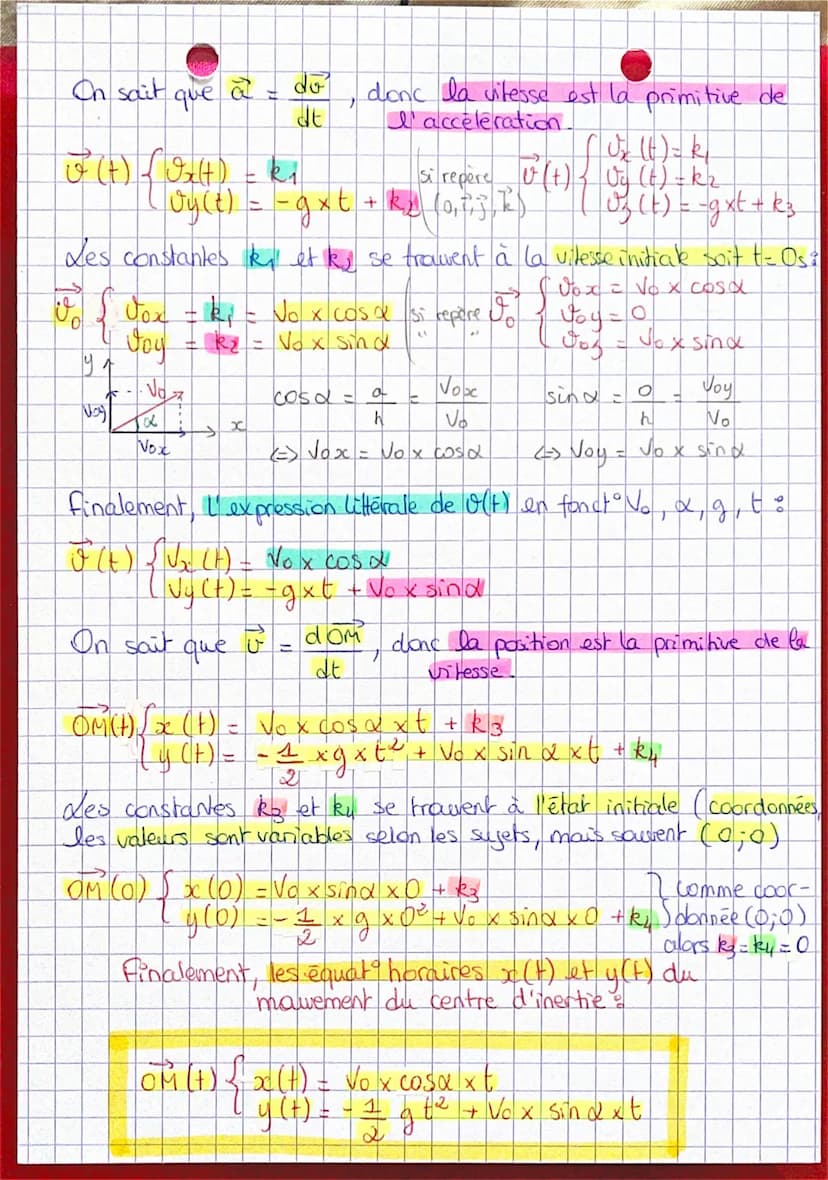 On sait que a⃗ = dv⃗/dt, donc la vitesse est la primitive de
l'accélération.
v⃗(t) { vx(t) = k1 (si repère (O,i⃗,j⃗,k⃗) v⃗(t) { vx(t) = k1
vy(t) = -g×t + k2 vy(t) = k2
vz(t) = -g×t + k3
Les constantes k1 et k2 se trouvent à la vitesse initiale soit t=0s :
v⃗0 { v0x = k1 = V0 × cosα (si repère " " v⃗0 { v0x = V0 × cosα
v0y = k2 = V0 × sinα v0y = 0
v0z = V0 × sinα
y
V0
V0y α x
V0x
cosα = a/h = V0x/V0 sinα = o/h = V0y/V0
<=> V0x = V0 × cosα <=> V0y = V0 × sinα
Finalement, l'expression littérale de v(t) en fonct° V0, α, g, t :
v⃗(t) { Vx(t) = V0 × cosα
Vy(t) = -g×t + V0 × sinα
On sait que v⃗ = dOM⃗/dt, donc la position est la primitive de la
vitesse.
OM⃗(t) { x(t) = V0 × cosα × t + k3
y(t) = -1/2 × g × t² + V0 × sin α × t + k4
Les constantes k3 et k4 se trouvent à l'état initiale (coordonnées,
les valeurs sont variables selon les sujets, mais souvent (0;0)
OM⃗(0) { x(0) = V0 × sinα × 0 + k3 } comme coor-
y(0) = -1/2 × g × 0² + V0 × sinα × 0 + k4 donnée (0;0)
alors k3 = k4 = 0
Finalement, les équat° horaires x(t) et y(t) du
mouvement du centre d'inertie :
OM⃗(t) { x(t) = V0 × cosα × t
y(t) = -1/2 gt² + V0 × sin α × t